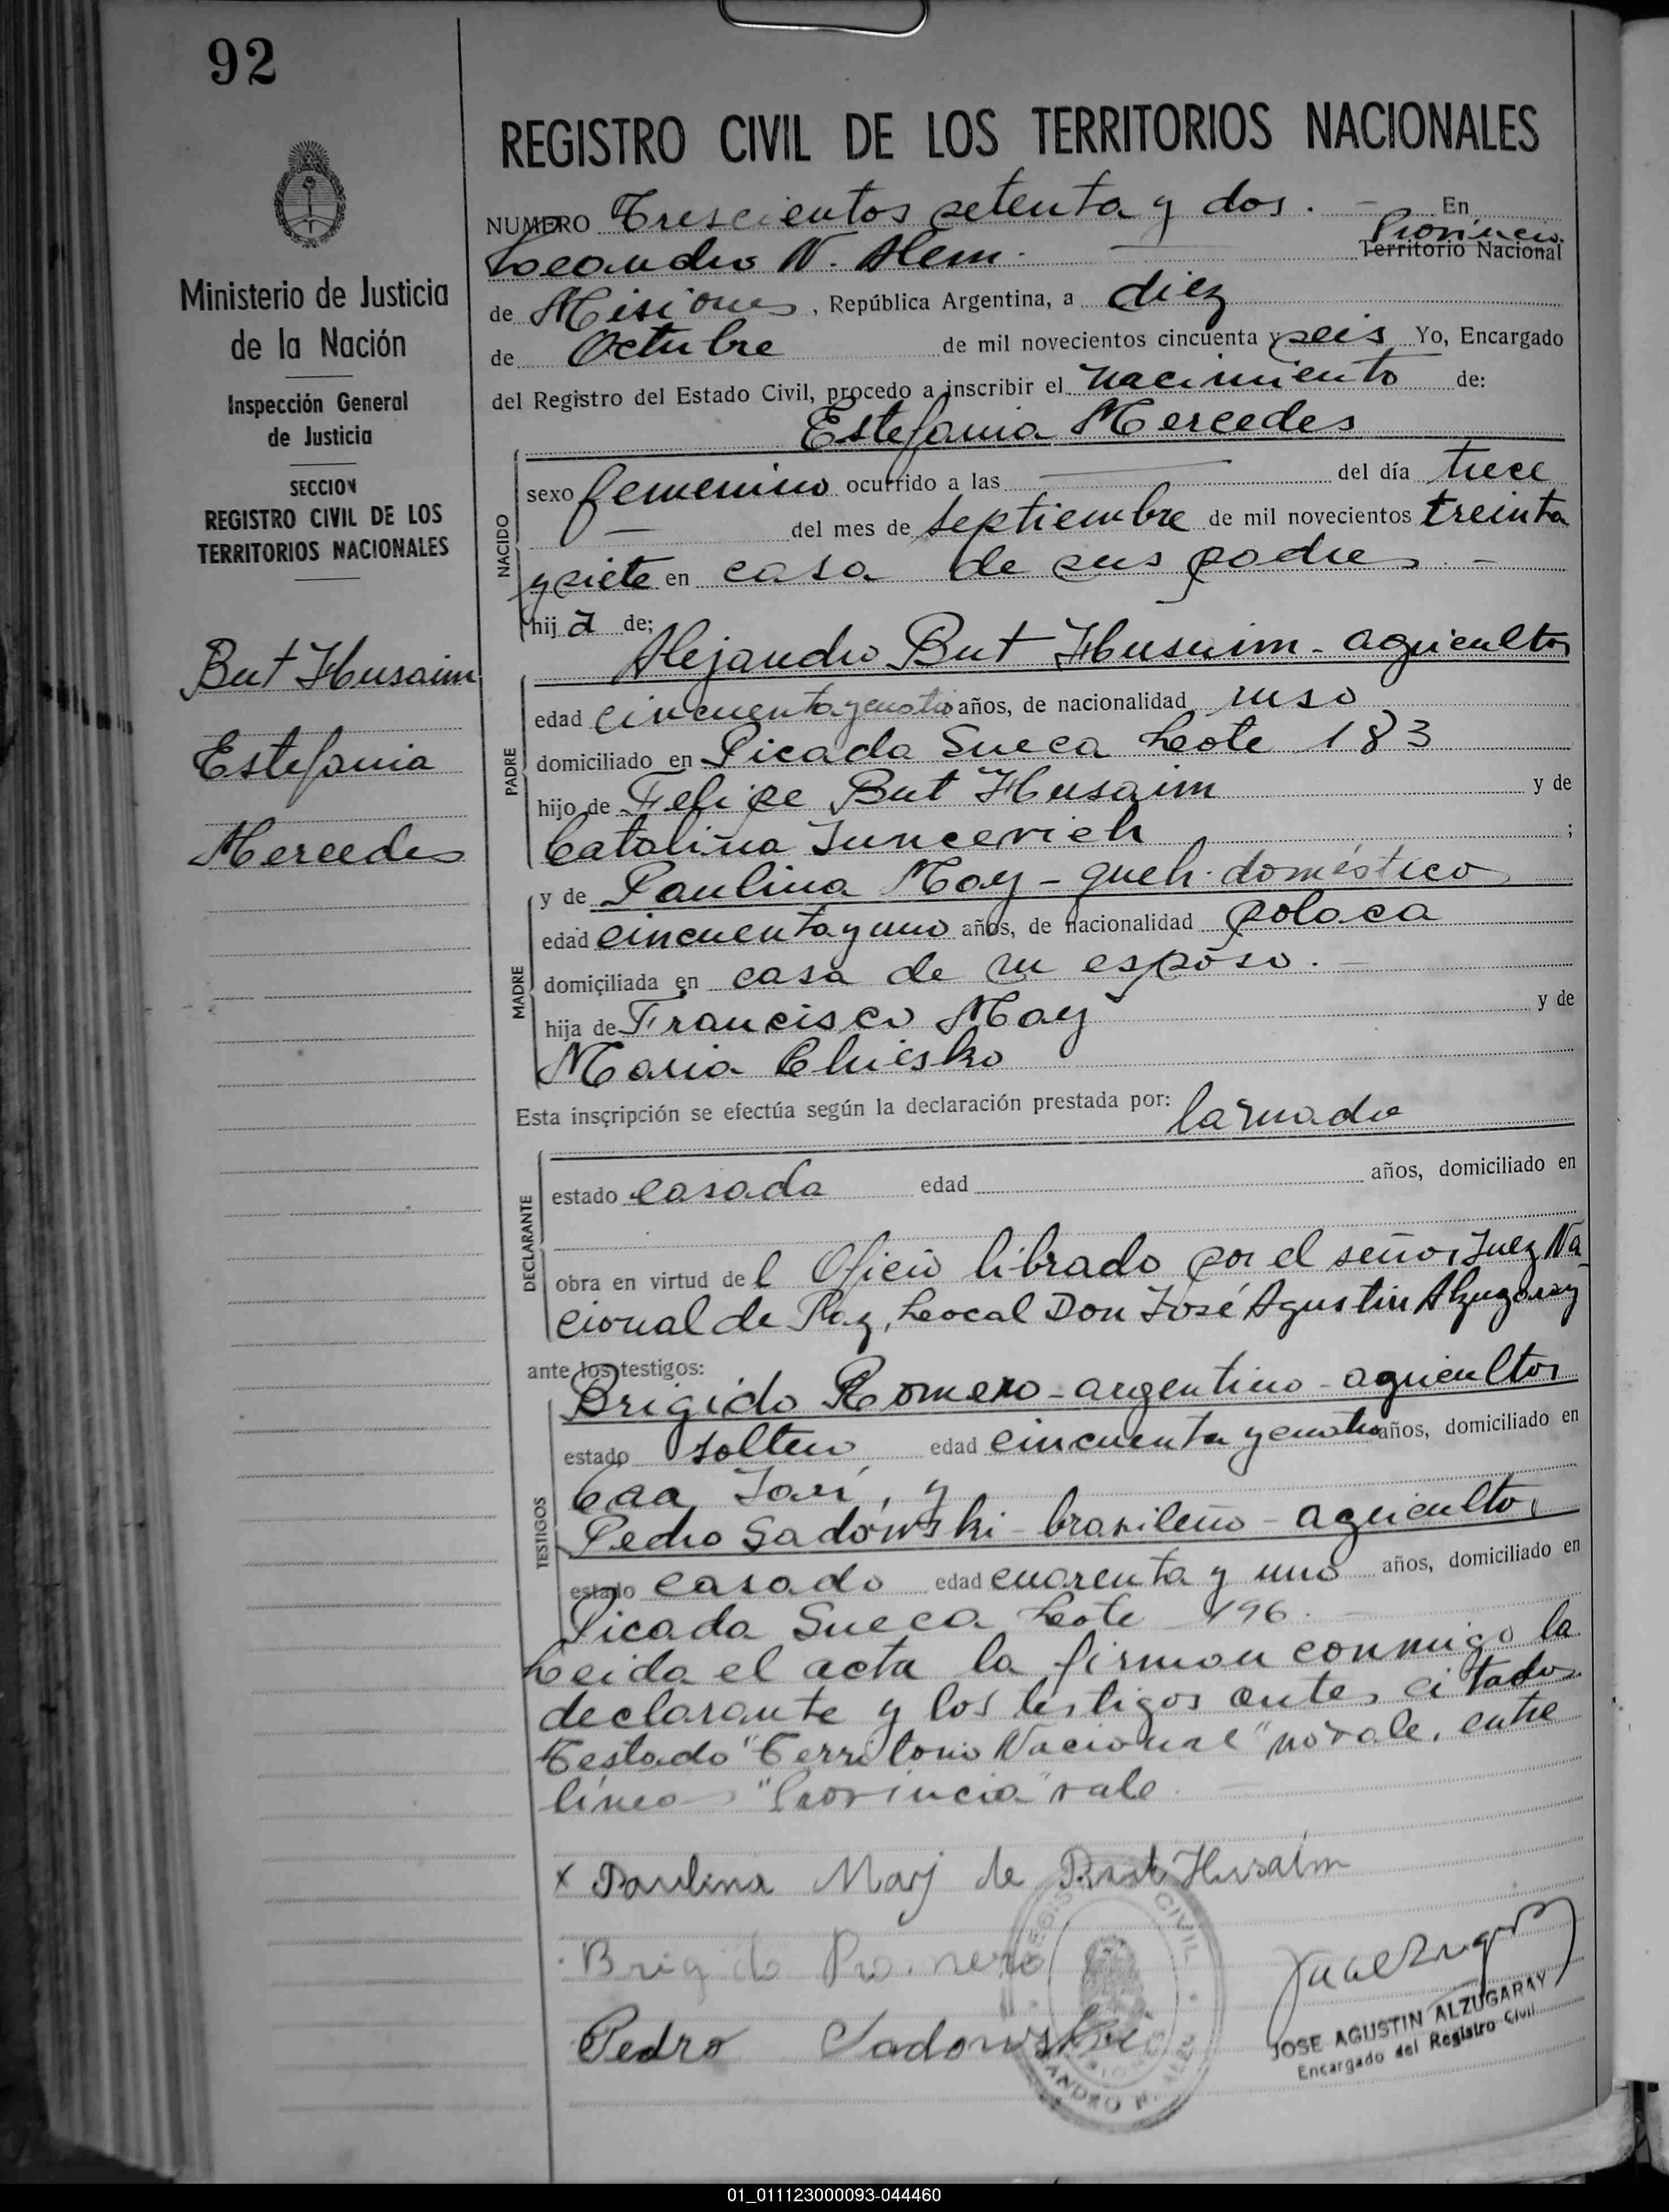 92
Ministerio de Justicia
de la Nación
Inspección General
de Justicia
SECCION
REGISTRO CIVIL DE LOS
TERRITORIOS NACIONALES
But Husaim
Estefania
Mercedes
REGISTRO CIVIL DE LOS TERRITORIOS NACIONALES
NUMERO Trescientos setenta y dos. - En
Leandro N. Alem. Provincia Territorio Nacional
de Misiones, República Argentina, a diez
de Octubre de mil novecientos cincuenta y seis Yo, Encargado
del Registro del Estado Civil, procedo a inscribir el nacimiento de:
Estefania Mercedes
NACIDO
sexo femenino ocurrido a las del día trece
del mes de septiembre de mil novecientos treinta
y siete en casa de sus padres -
hija de:
PADRE
Alejandro But Husaim - agricultor
edad cincuenta y cuatro años, de nacionalidad ruso
domiciliado en Picada Sueca Lote 183
hijo de Felipe But Husaim y de
Catalina Juncevich ;
MADRE
y de Paulina May - queh. doméstico
edad cincuenta y uno años, de nacionalidad polaca
domiciliada en casa de su esposo. -
hija de Francisco May y de
Maria Chiesko
Esta inscripción se efectúa según la declaración prestada por: la madre
DECLARANTE
estado casada edad años, domiciliado en
obra en virtud del Oficio librado por el señor Juez Na
cional de Paz, Local Don José Agustin Alzugaray
ante los testigos:
TESTIGOS
Brigido Romero - argentino - agricultor
estado soltero edad cincuenta y cuatro años, domiciliado en
Caa Yari, y
Pedro Sadowski - brasileño - agricultor
estado casado edad cuarenta y uno años, domiciliado en
Picada Sueca Lote 196. -
Leida el acta la firman conmigo la
declarante y los testigos antes citados.
Testado "Territorio Nacional" no vale, entre
líneas "Provincia" vale.
x Paulina Maj de But Husaim
Brigido Romero
Pedro Sadowski
CIVIL
JOSE AGUSTIN ALZUGARAY
Encargado del Registro Civil
01_011123000093-044460